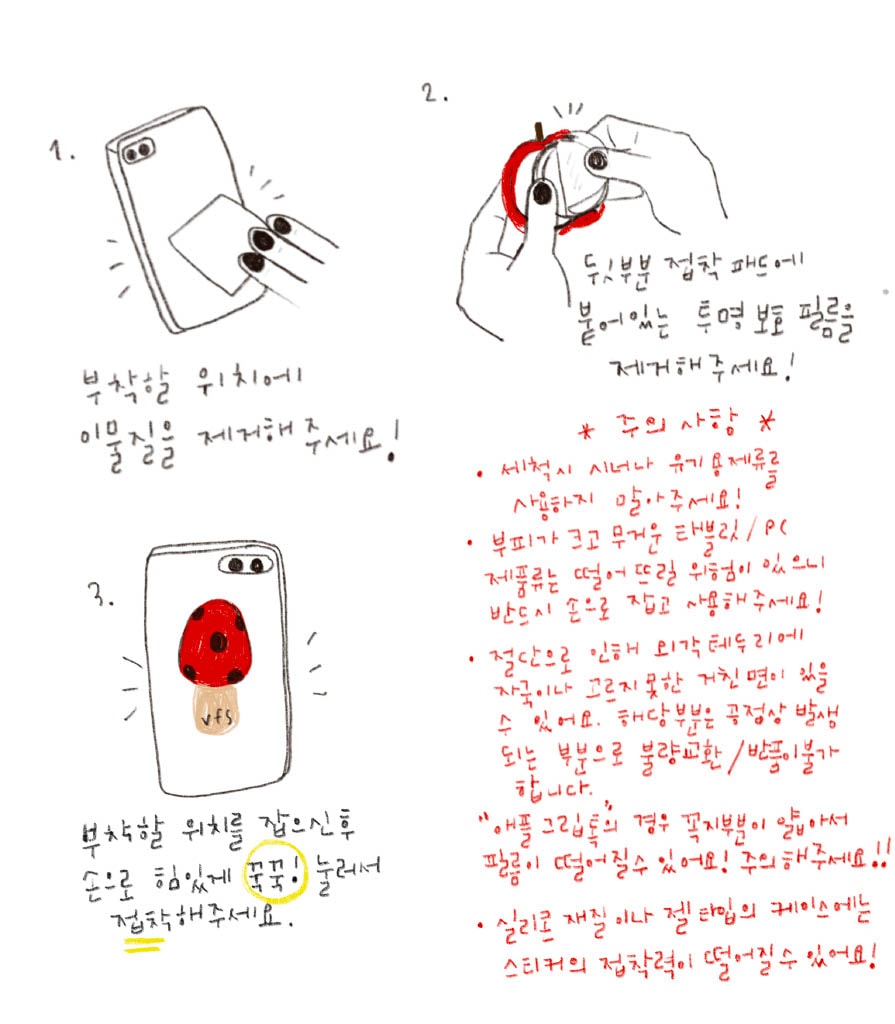 1.
부착할 위치에
이물질을 제거해주세요!
2.
뒷부분 접착 패드에
붙어있는 투명 보호 필름을
제거해주세요!
3.
vfs
부착할 위치를 잡으신후
손으로 힘있게 꾹꾹! 눌러서
접착해주세요.
* 주의 사항 *
• 세척시 시너나 유기용제류를
사용하지 말아주세요!
• 부피가 크고 무거운 태블릿/PC
제품류는 떨어 뜨릴 위험이 있으니
반드시 손으로 잡고 사용해주세요!
• 절단으로 인해 외각테두리에
자국이나 고르지못한 거친면이 있을
수 있어요. 해당부분은 공정상 발생
되는 부분으로 불량교환/반품이불가
합니다.
"애플그립톡"의 경우 꼭지부분이 얇아서
필름이 떨어질수 있어요! 주의해주세요!!
• 실리콘 재질이나 젤타입의 케이스에는
스티커의 접착력이 떨어질수있어요!